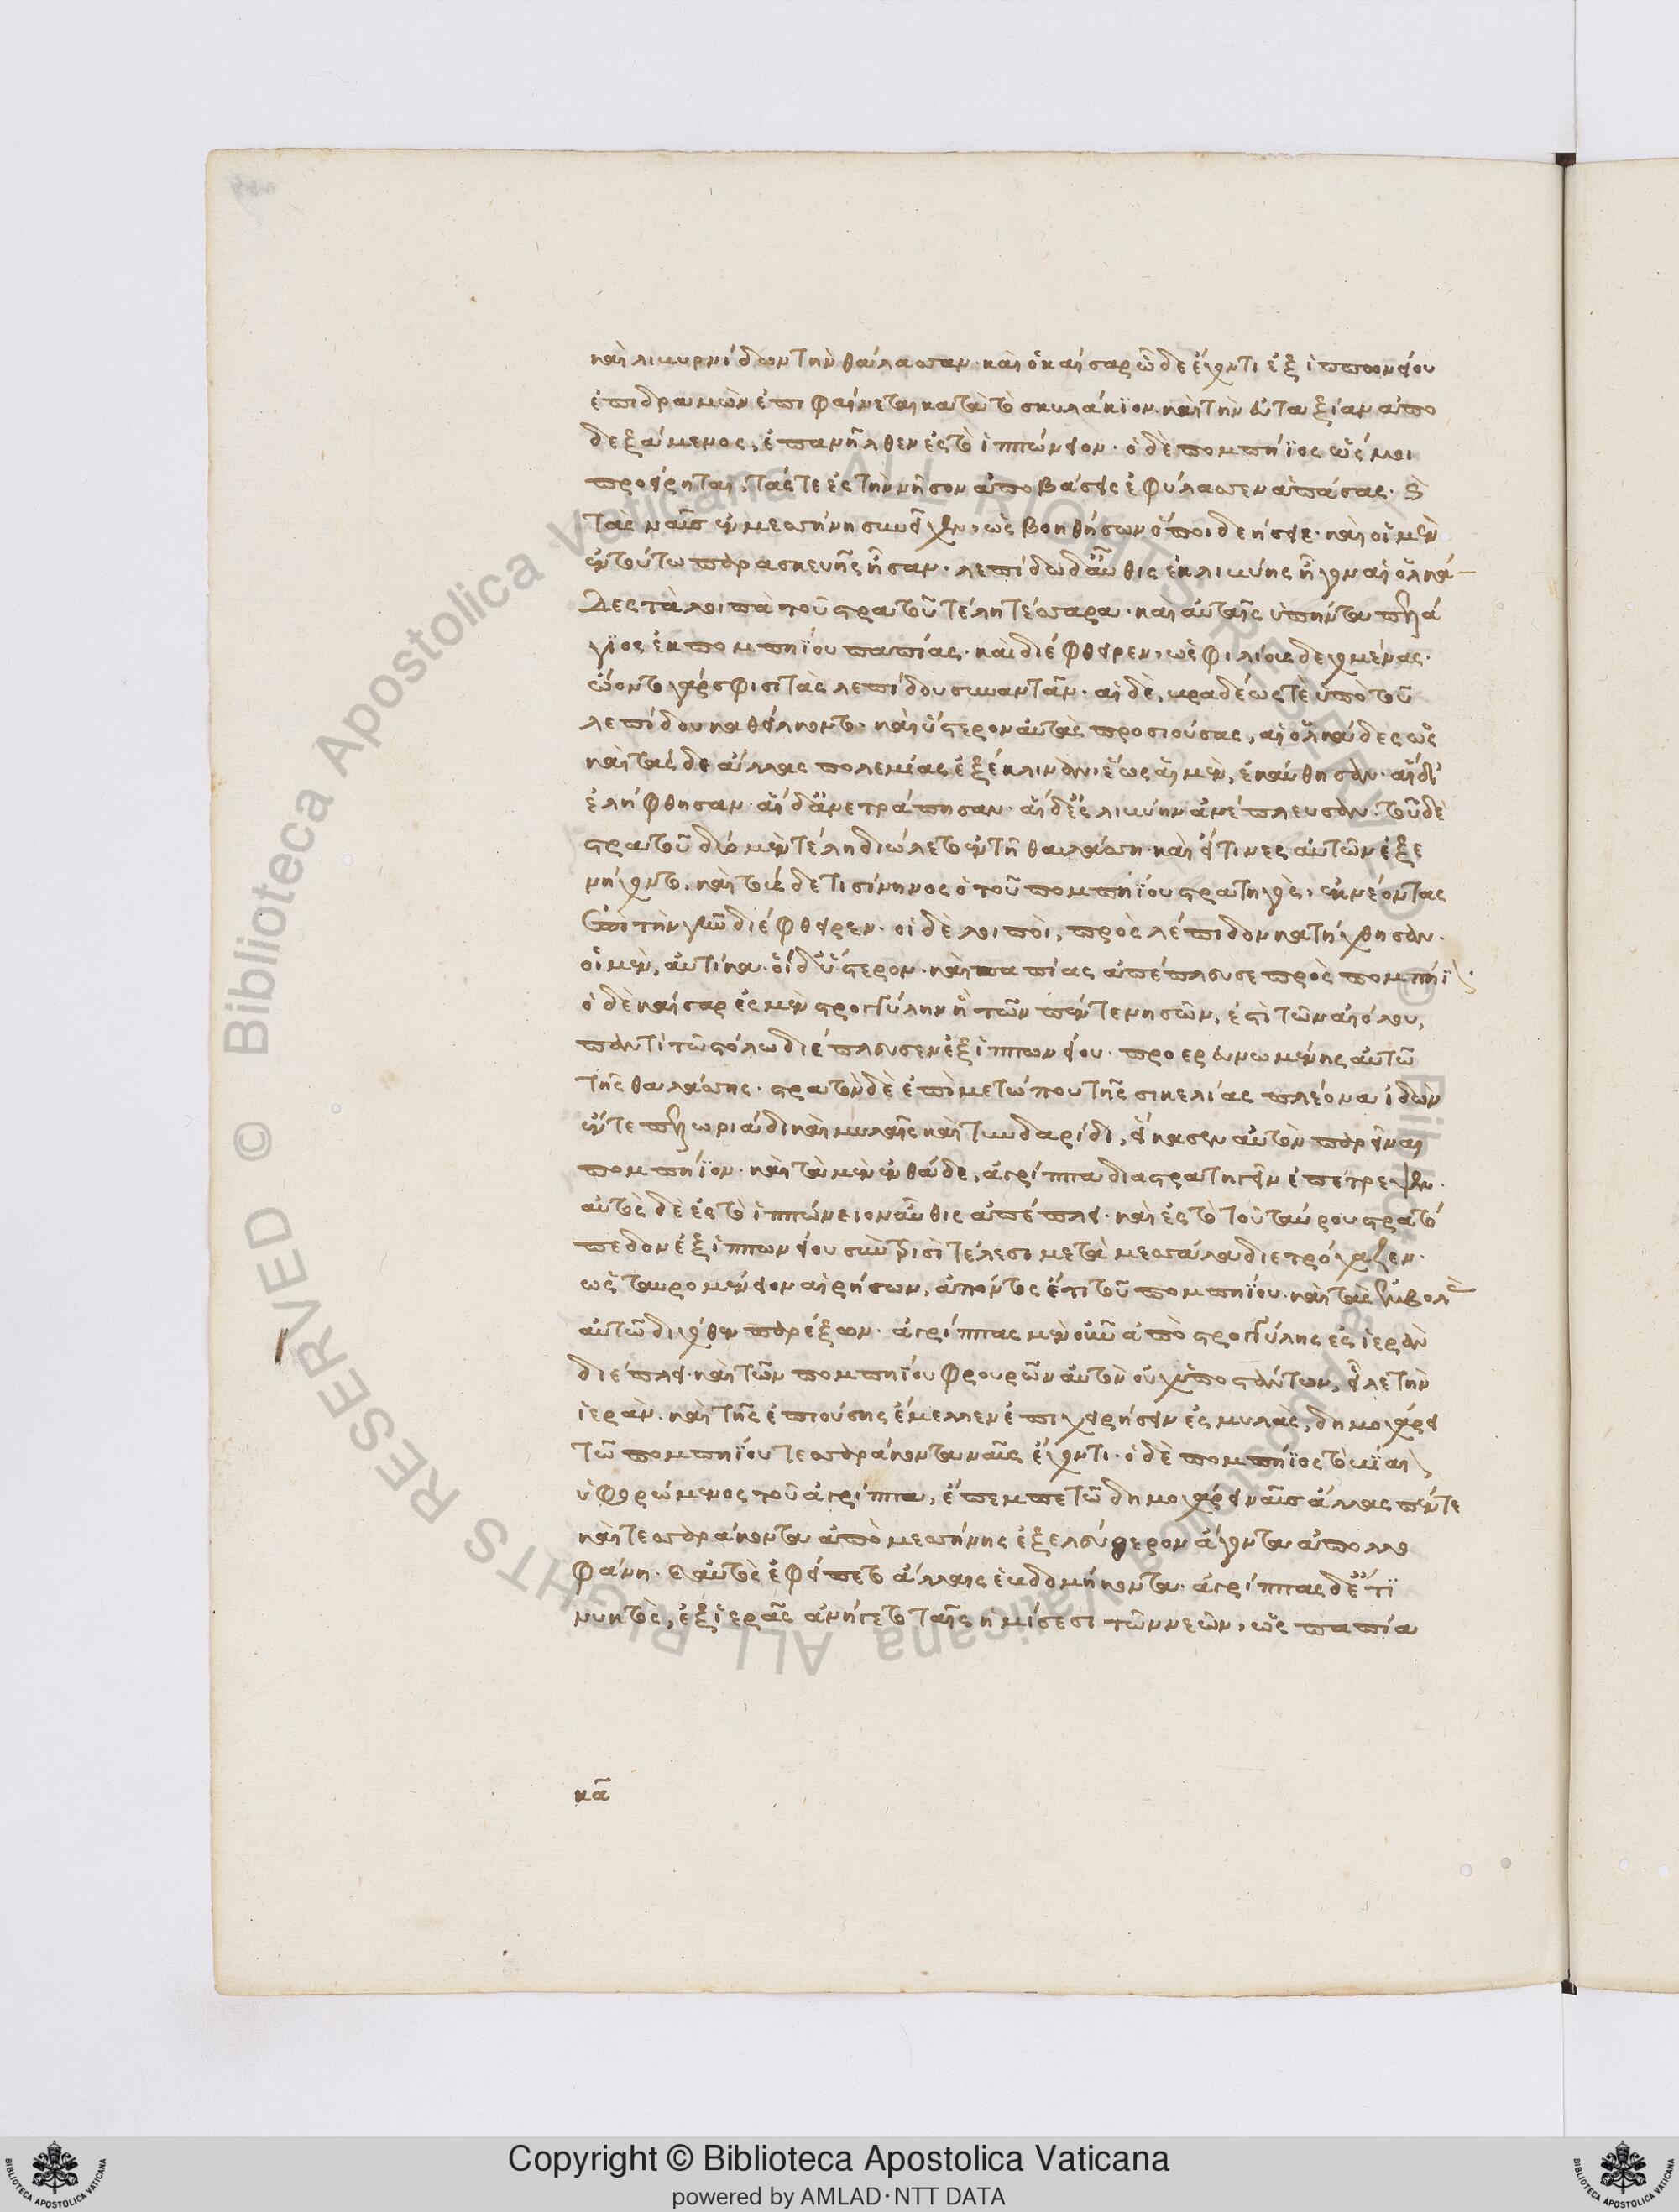 καὶ λιβυρνίδων τὴν θάλασσαν· καὶ ὁ καῖσαρ ὧδε ἔχοντι ἐξ ἱππωνείου
ἐπιδραμὼν ἐπιφαίνεται κατὰ τὸ σκυλάκιον· καὶ τὴν εὐταξίαν ἀπο
δεξάμενος, ἐπανῆλθεν ἐς τὸ ἱππώνειον· ὁ δὲ πομπήϊος ὥς μοι
προείρηται, τάς τε ἐς τὴν νῆσον ἀποβάσεις ἐφύλασσεν ἁπάσας· καὶ
τὰς ναῦς ἐν μεσσήνῃ συνεῖχεν, ὡς βοηθήσων ὅποι δεήσειε· καὶ οἱ μὲν
ἐν τούτω παρασκευῆς ἦσαν· λεπίδω δ' αὖθις ἐκ λιβύης ἦγον αἱ ὁλκά-
δες τὰ λοιπὰ τοῦ στρατοῦ τέλη τέσσαρα· καὶ αὐταῖς ὑπήντα πελά
γιος ἐκ πομπηΐου παπίας· καὶ διέφθειρεν, ὡς φιλίους δεχομένας·
ᾤοντο γάρ σφισι τὰς λεπίδου συναντᾶν· αἱ δὲ, βραδέως τὲ ὑπὸ τοῦ
λεπίδου καθείλκοντο· καὶ ὕστερον αὐτὰς προσιούσας, αἱ ὁλκάδες ὡς
καὶ τάσδε ἄλλας πολεμίας ἐξέκλιναν· ἕως αἱ μὲν, ἐκαύθησαν· αἱ δ'
ἐλήφθησαν· αἱ δ' ἀνετράπησαν· αἱ δ' ἐς λιβύην ἀνέπλευσαν· τοῦ δὲ
στρατοῦ δύο μὲν τέλη διώλετο ἐν τῇ θαλάσσῃ· καὶ εἴ τινες αὐτῶν ἐξε
νήχοντο, καὶ τούσδε τισίηνος ὁ τοῦ πομπηΐου στρατηγὸς, ἐκνέοντας
ἐπὶ τὴν γῆν διέφθειρεν· οἱ δὲ λοιποὶ, πρὸς λέπιδον κατήχθησαν·
οἱ μὲν, αὐτίκα· οἱ δ' ὕστερον· καὶ παπίας ἀπέπλευσε πρὸς πομπήϊον·
ὁ δὲ καῖσαρ ἐς μὲν στρογγύλην ἣ τῶν πέντε νησῶν, ἐστὶ τῶν αἰόλου,
παντὶ τῶ στόλω διέπλευσεν ἐξ ἱππωνείου· προερευνωμένης αὐτῶ
τῆς θαλάσσης· στρατὸν δὲ ἐπὶ μετώπου τῆς σικελίας πλέονα ἰδὼν
ἔν τε πελωριάδι καὶ μυλαῖς καὶ τυνδαρίδι, εἴκασεν αὐτὸν παρεῖναι
πομπήϊον· καὶ τὰ μὲν ἐνθάδε, ἀγρίππα διαστρατηγεῖν ἐπέτρεψεν·
αὐτὸς δὲ ἐς τὸ ἱππώνειον αὖθις ἀπέπλει· καὶ ἐς τὸ τοῦ ταύρου στρατό
πεδον ἐξ ἱππωνείου σὺν τρισὶ τέλεσι μετὰ μεσσάλα διετρόχαζεν·
ὡς ταυρομένειον αἱρήσων, ἀπόντος ἔτι τοῦ πομπηΐου· καὶ τὰς ἐμβολὰς
αὐτῶ διχόθεν παρέξων· ἀγρίππας μὲν οὖν ἀπὸ στρογγύλης ἐς ἱερὰν
διέπλει· καὶ τῶν πομπηΐου φρουρῶν αὐτὸν οὐχ ὑποστάντων, εἷλε τὴν
ἱερὰν· καὶ τῆς ἐπιούσης ἔμελλεν ἐπιχειρήσειν ἐς μυλὰς, δημοχάρει
τῶ πομπηΐου τεσσαράκοντα ναῦς ἔχοντι· ὁ δὲ πομπήϊος τὸ βίαιον
ὑφορώμενος τοῦ ἀγρίππα, ἔπεμπε τῶ δημοχάρει ναῦς ἄλλας πέντε
καὶ τεσσαράκοντα ἀπὸ μεσσήνης ἐξελεύθερον ἄγοντα ἀπολλο
φάνη· καὶ αὐτὸς ἐφείπετο ἄλλαις ἑβδομήκοντα· ἀγρίππας δ' ἔτι
νυκτὸς, ἐξ ἱερᾶς ἀνήγετο ταῖς ἡμίσεσι τῶν νεῶν, ὡς παπία
κα
Copyright © Biblioteca Apostolica Vaticana
powered by AMLAD·NTT DATA